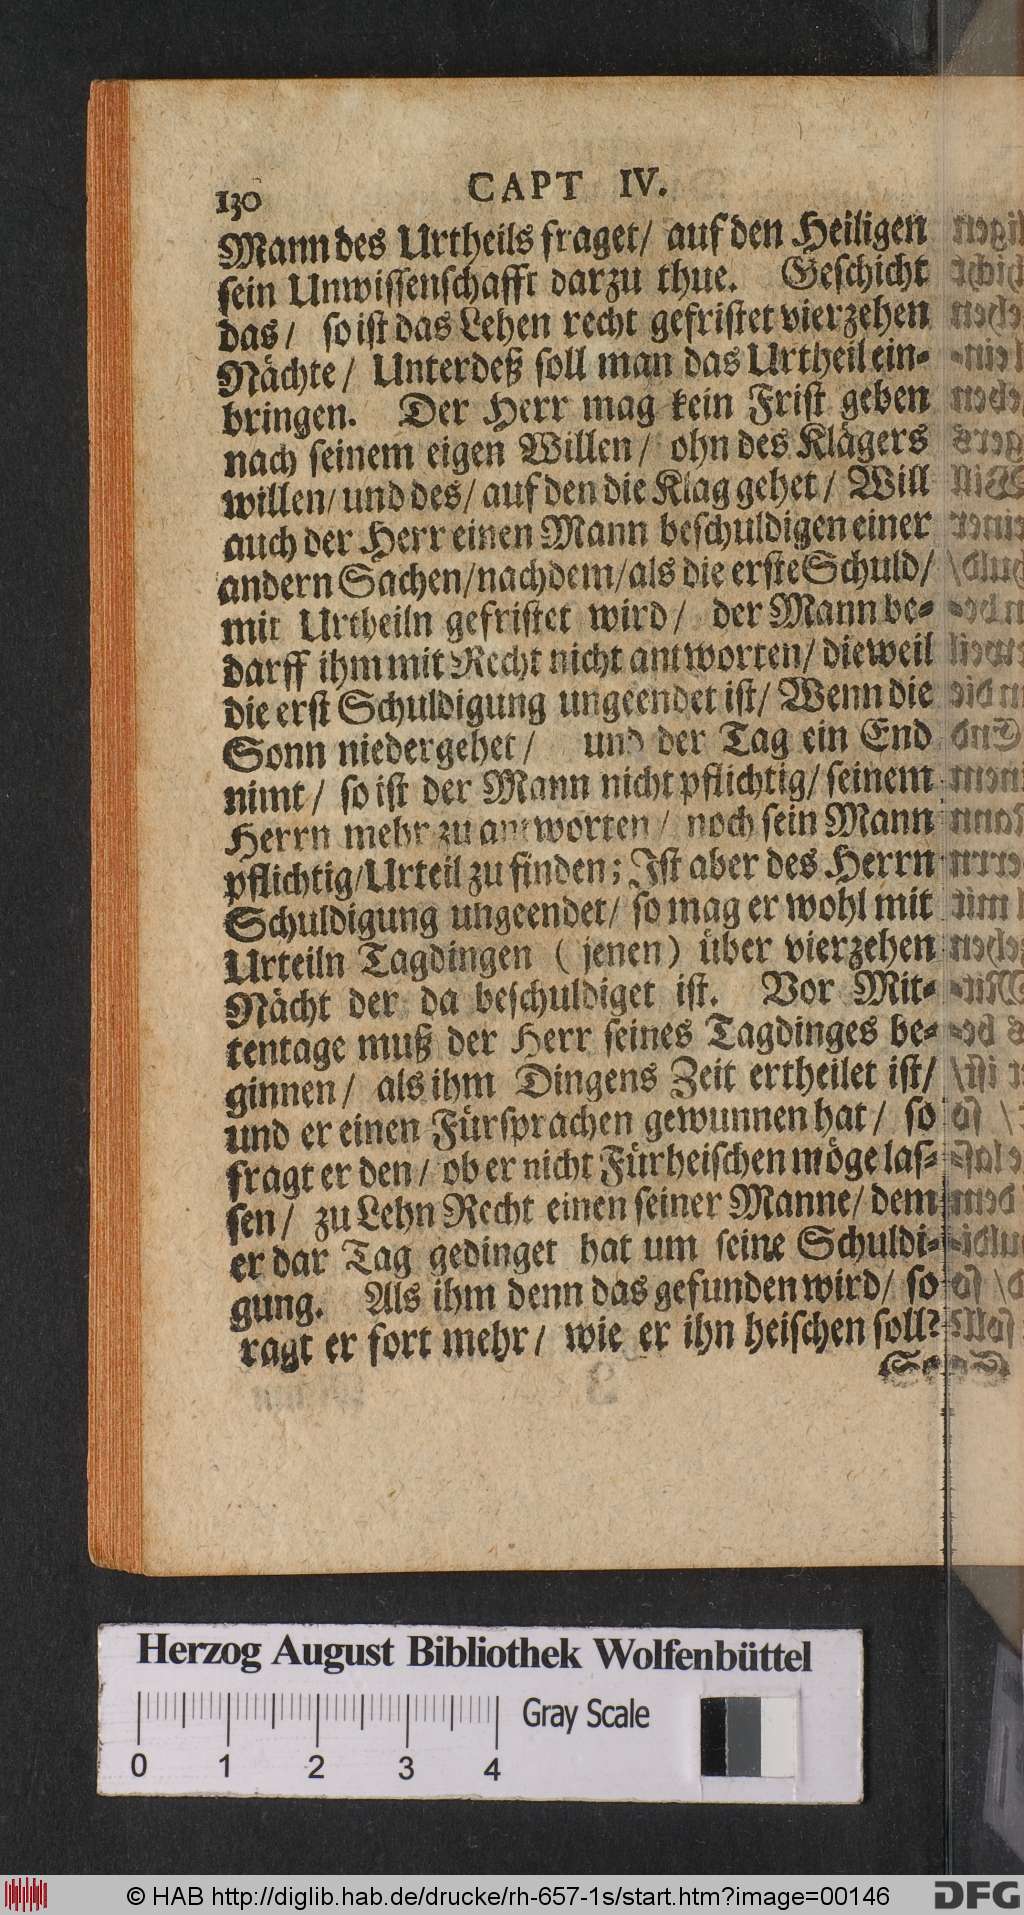 130 CAPT IV.
Mann des Urtheils fraget/ auf den Heiligen
sein Unwissenschafft darzu thue. Geschicht
das/ so ist das Lehen recht gefristet vierzehen
Nächte/ Unterdeß soll man das Urtheil ein-
bringen. Der Herr mag kein Frist geben
nach seinem eigen Willen/ ohn des Klägers
willen/ und des/ auf den die Klag gehet/ Will
auch der Herr einen Mann beschuldigen einer
andern Sachen/ nachdem/ als die erste Schuld/
mit Urtheiln gefristet wird/ der Mann be-
darff ihm mit Recht nicht antworten/ dieweil
die erst Schuldigung ungeendet ist/ Wenn die
Sonn niedergehet/ und der Tag ein End
nimt/ so ist der Mann nicht pflichtig/ seinem
Herrn mehr zu antworten/ noch sein Mann
pflichtig/ Urteil zu finden; Ist aber des Herrn
Schuldigung ungeendet/ so mag er wohl mit
Urteiln Tagdingen (jenen) über vierzehen
Nächt der da beschuldiget ist. Vor Mit-
tentage muß der Herr seines Tagdinges be-
ginnen/ als ihm Dingens Zeit ertheilet ist/
und er einen Fürsprachen gewunnen hat/ so
fragt er den/ ob er nicht Fürheischen möge las-
sen/ zu Lehn Recht einen seiner Manne/ dem
er dar Tag gedinget hat um seine Schuldi-
gung. Als ihm denn das gefunden wird/ so
ragt er fort mehr/ wie er ihn heischen soll?
Herzog August Bibliothek Wolfenbüttel
Gray Scale
0 1 2 3 4
© HAB http://diglib.hab.de/drucke/rh-657-1s/start.htm?image=00146
DFG